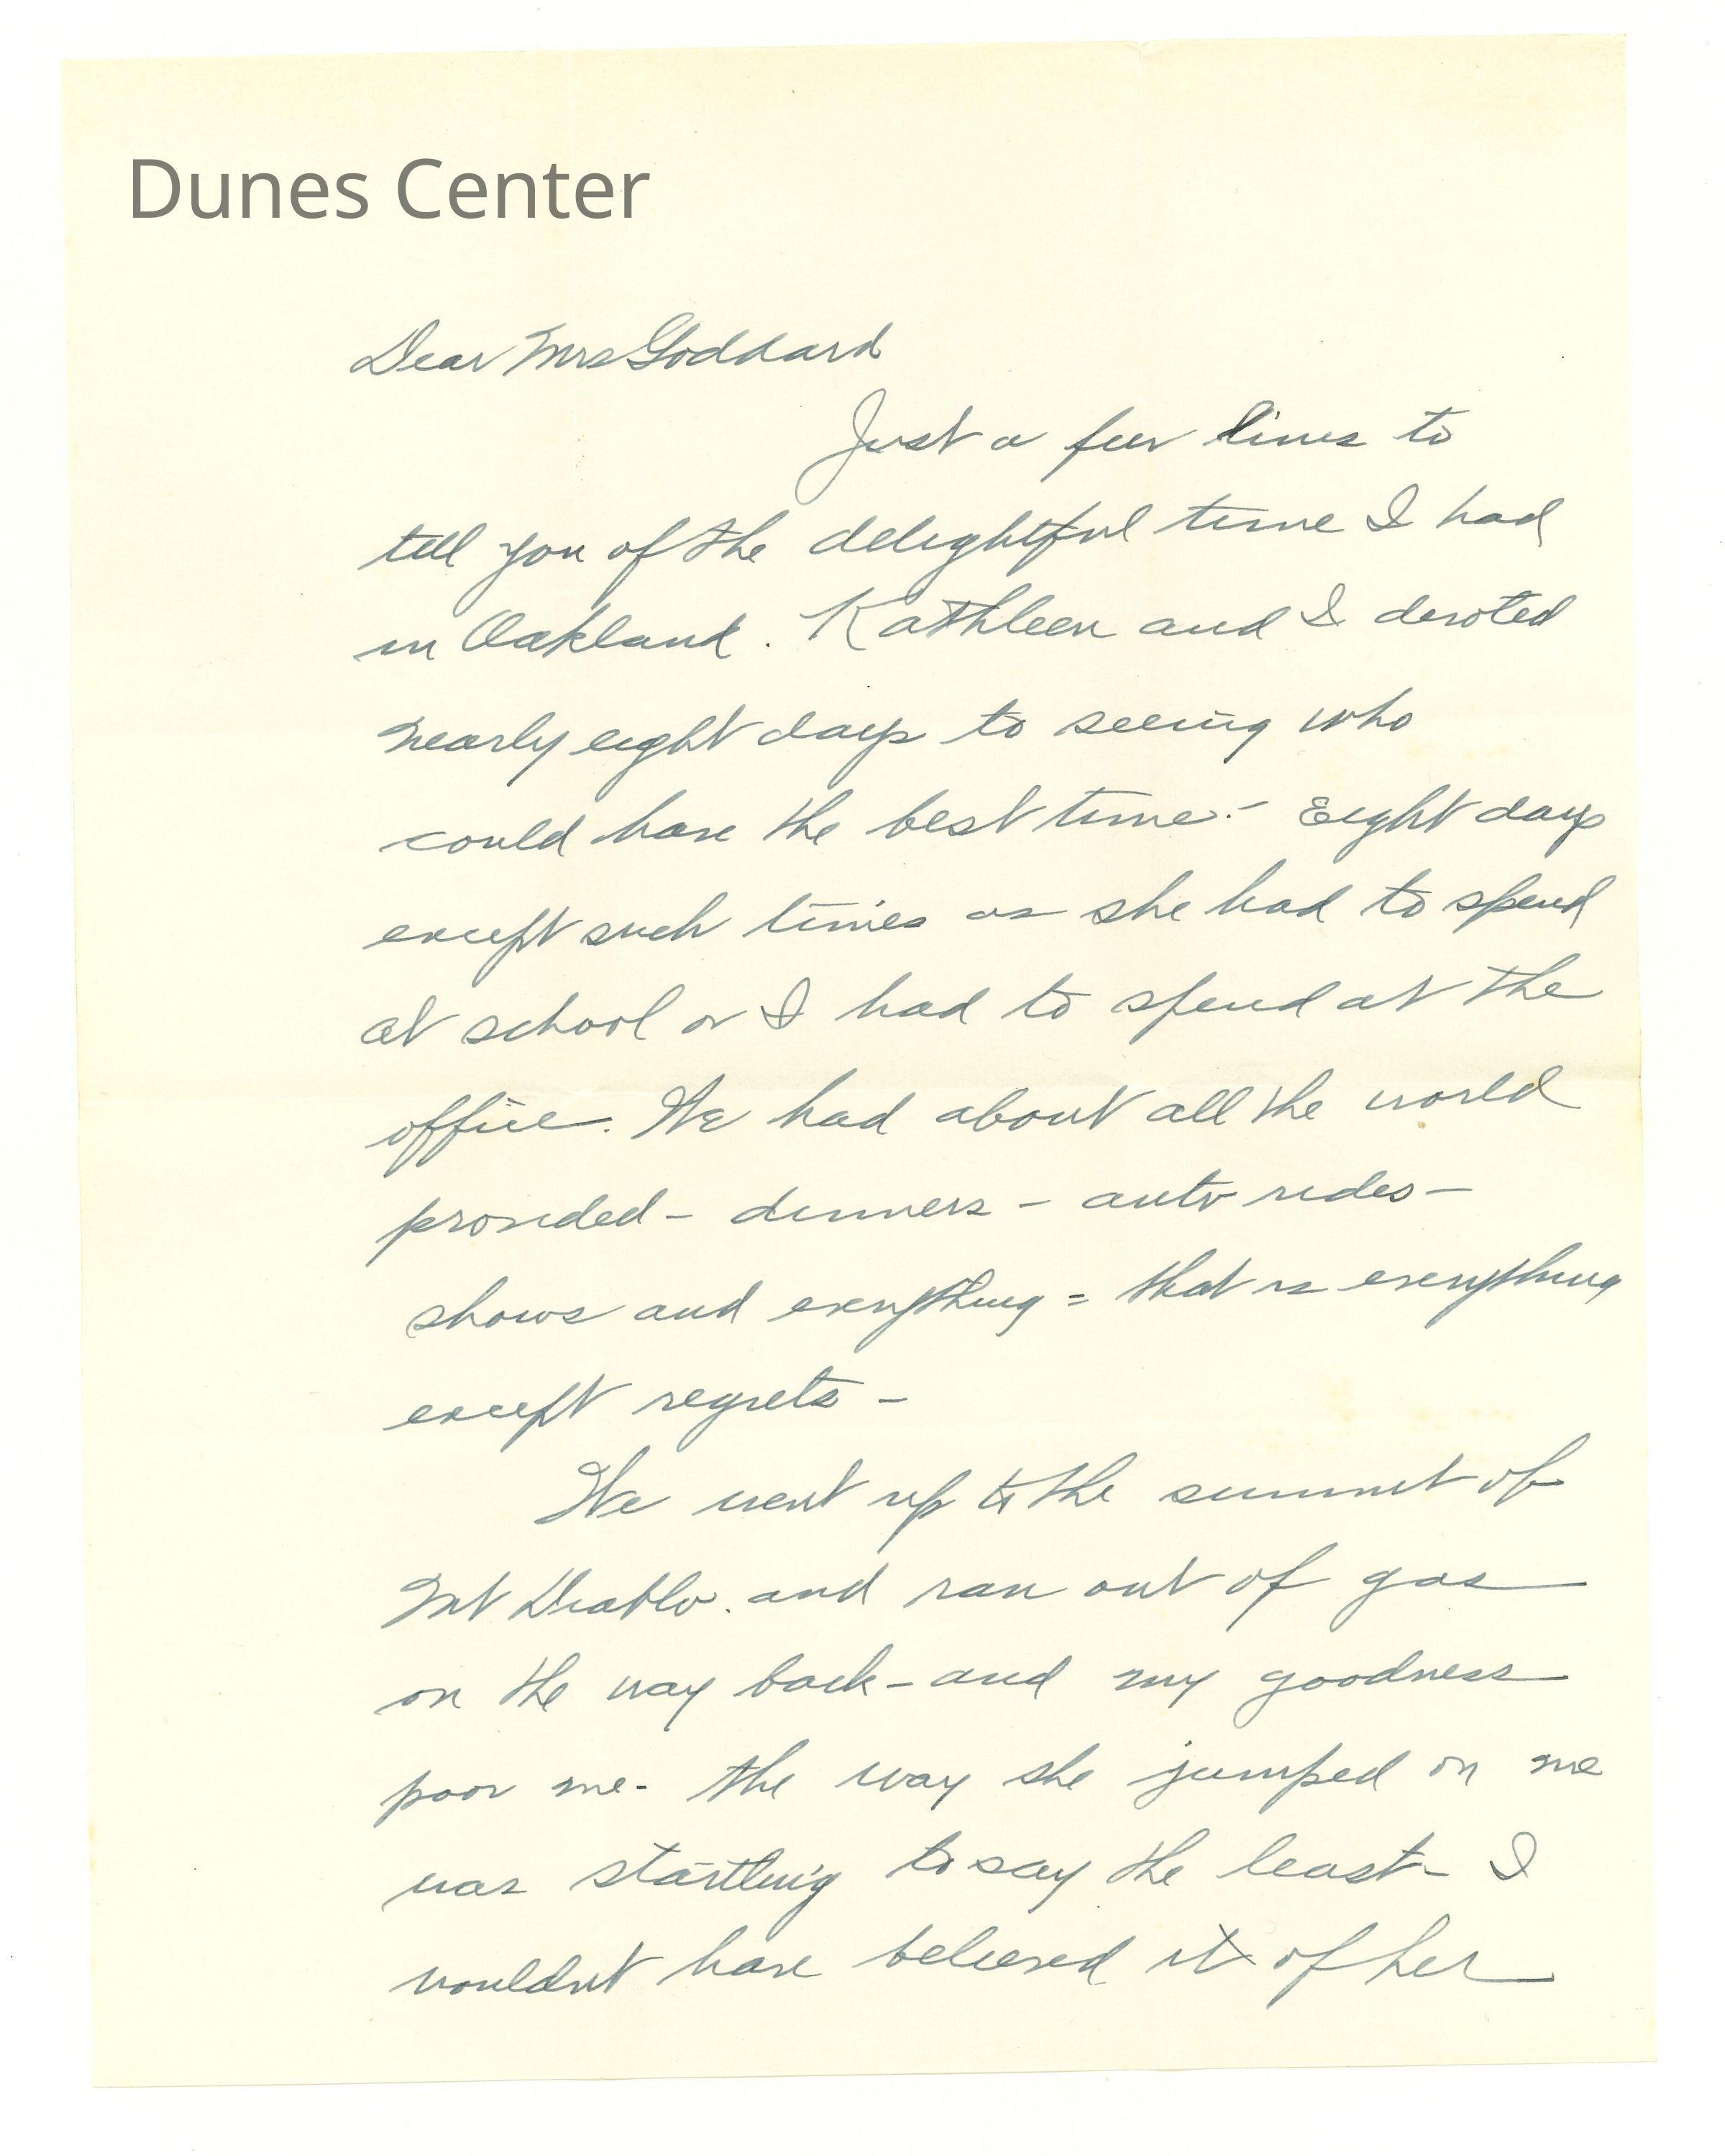 Dunes Center
Dear Mrs Goddard
Just a few lines to
tell you of the delightful time I had
in Oakland. Kathleen and I devoted
nearly eight days to seeing who
could have the best time. - Eight days
except such times as she had to spend
at school or I had to spend at the
office. We had about all the world
provided - dinners - auto rides -
shows and everything = that is everything
except regrets -
We went up to the summit of
Mt Diablo. and ran out of gas
on the way back - and my goodness
poor me - the way she jumped on me
was startling to say the least - I
wouldnt have believed it of her